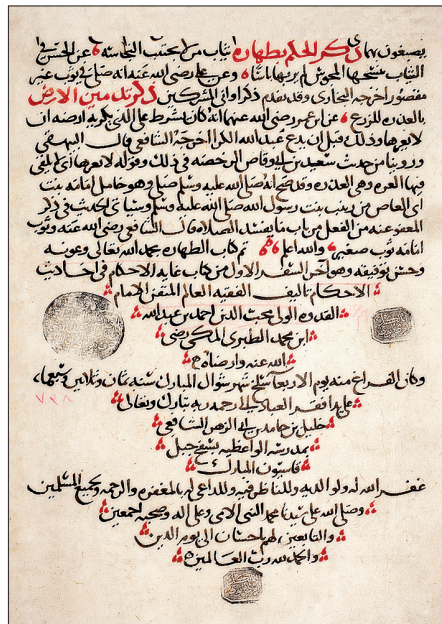 يصبغون بها ذكر الحكم بطهارة ثياب من لا يجتنب النجاسة عن الحسن في
الثياب ينسجها المجوسي لم ير بها باسا وعن علي رضي الله عنه انه صلى في ثوب غير
مقصور اخرجه البخاري وقد تقدم ذكر اواني المشركين ذكر تدمين الارض
بالعذرة للزرع عن ابن عمر رضي الله عنهما انه كان يشترط على الذي يكريه ارضه ان
لا يعرها وذلك قبل ان يدع عبد الله الكرا اخرجه الشافعي قال البيهقي
وروينا من حديث سعد بن ابي وقاص الرخصة في ذلك وقوله لا يعرها اي لا يلقي
فيها العره وهي العذرة وقد صح انه صلى الله عليه وسلم صلى وهو حامل امامة بنت
ابي العاص من زينب بنت رسول الله صلى الله عليه وسلم وسياتي الحديث في ذكر
المعفو عنه من الفعل من باب ما يفسد الصلاة قال الشافعي رضي الله عنه وثوب
امامة ثوب صغير والله اعلم تم كتاب الطهارة بحمد الله تعالى وعونه
وحسن توفيقه وهو آخر السفر الاول من كتاب غاية الاحكام في احاديث
الاحكام تاليف الفقيه العالم المتقن الامام
القدوة الولي محب الدين احمد بن عبد الله
ابن محمد الطبري المكي رضي
الله عنه وارضاه
وكان الفراغ منه يوم الاربعا سلخ شهر شوال المبارك سنة ثمان وثلاثين وسبعمائة
٧٣٨
على يد افقر العباد الى رحمة ربه تبارك وتعالى
خليل بن حامد بن ابي الزهر الشافعي
بمدرسة الواعظية بسفح جبل
قاسيون المبارك
غفر الله له ولوالديه وللناظر فيه وللداعي له بالمغفرة والرحمة ولجميع المسلمين
وصلى الله على سيدنا محمد النبي الامي وعلى اله وصحبه اجمعين
والتابعين لهم باحسان الى يوم الدين
والحمد لله رب العالمين